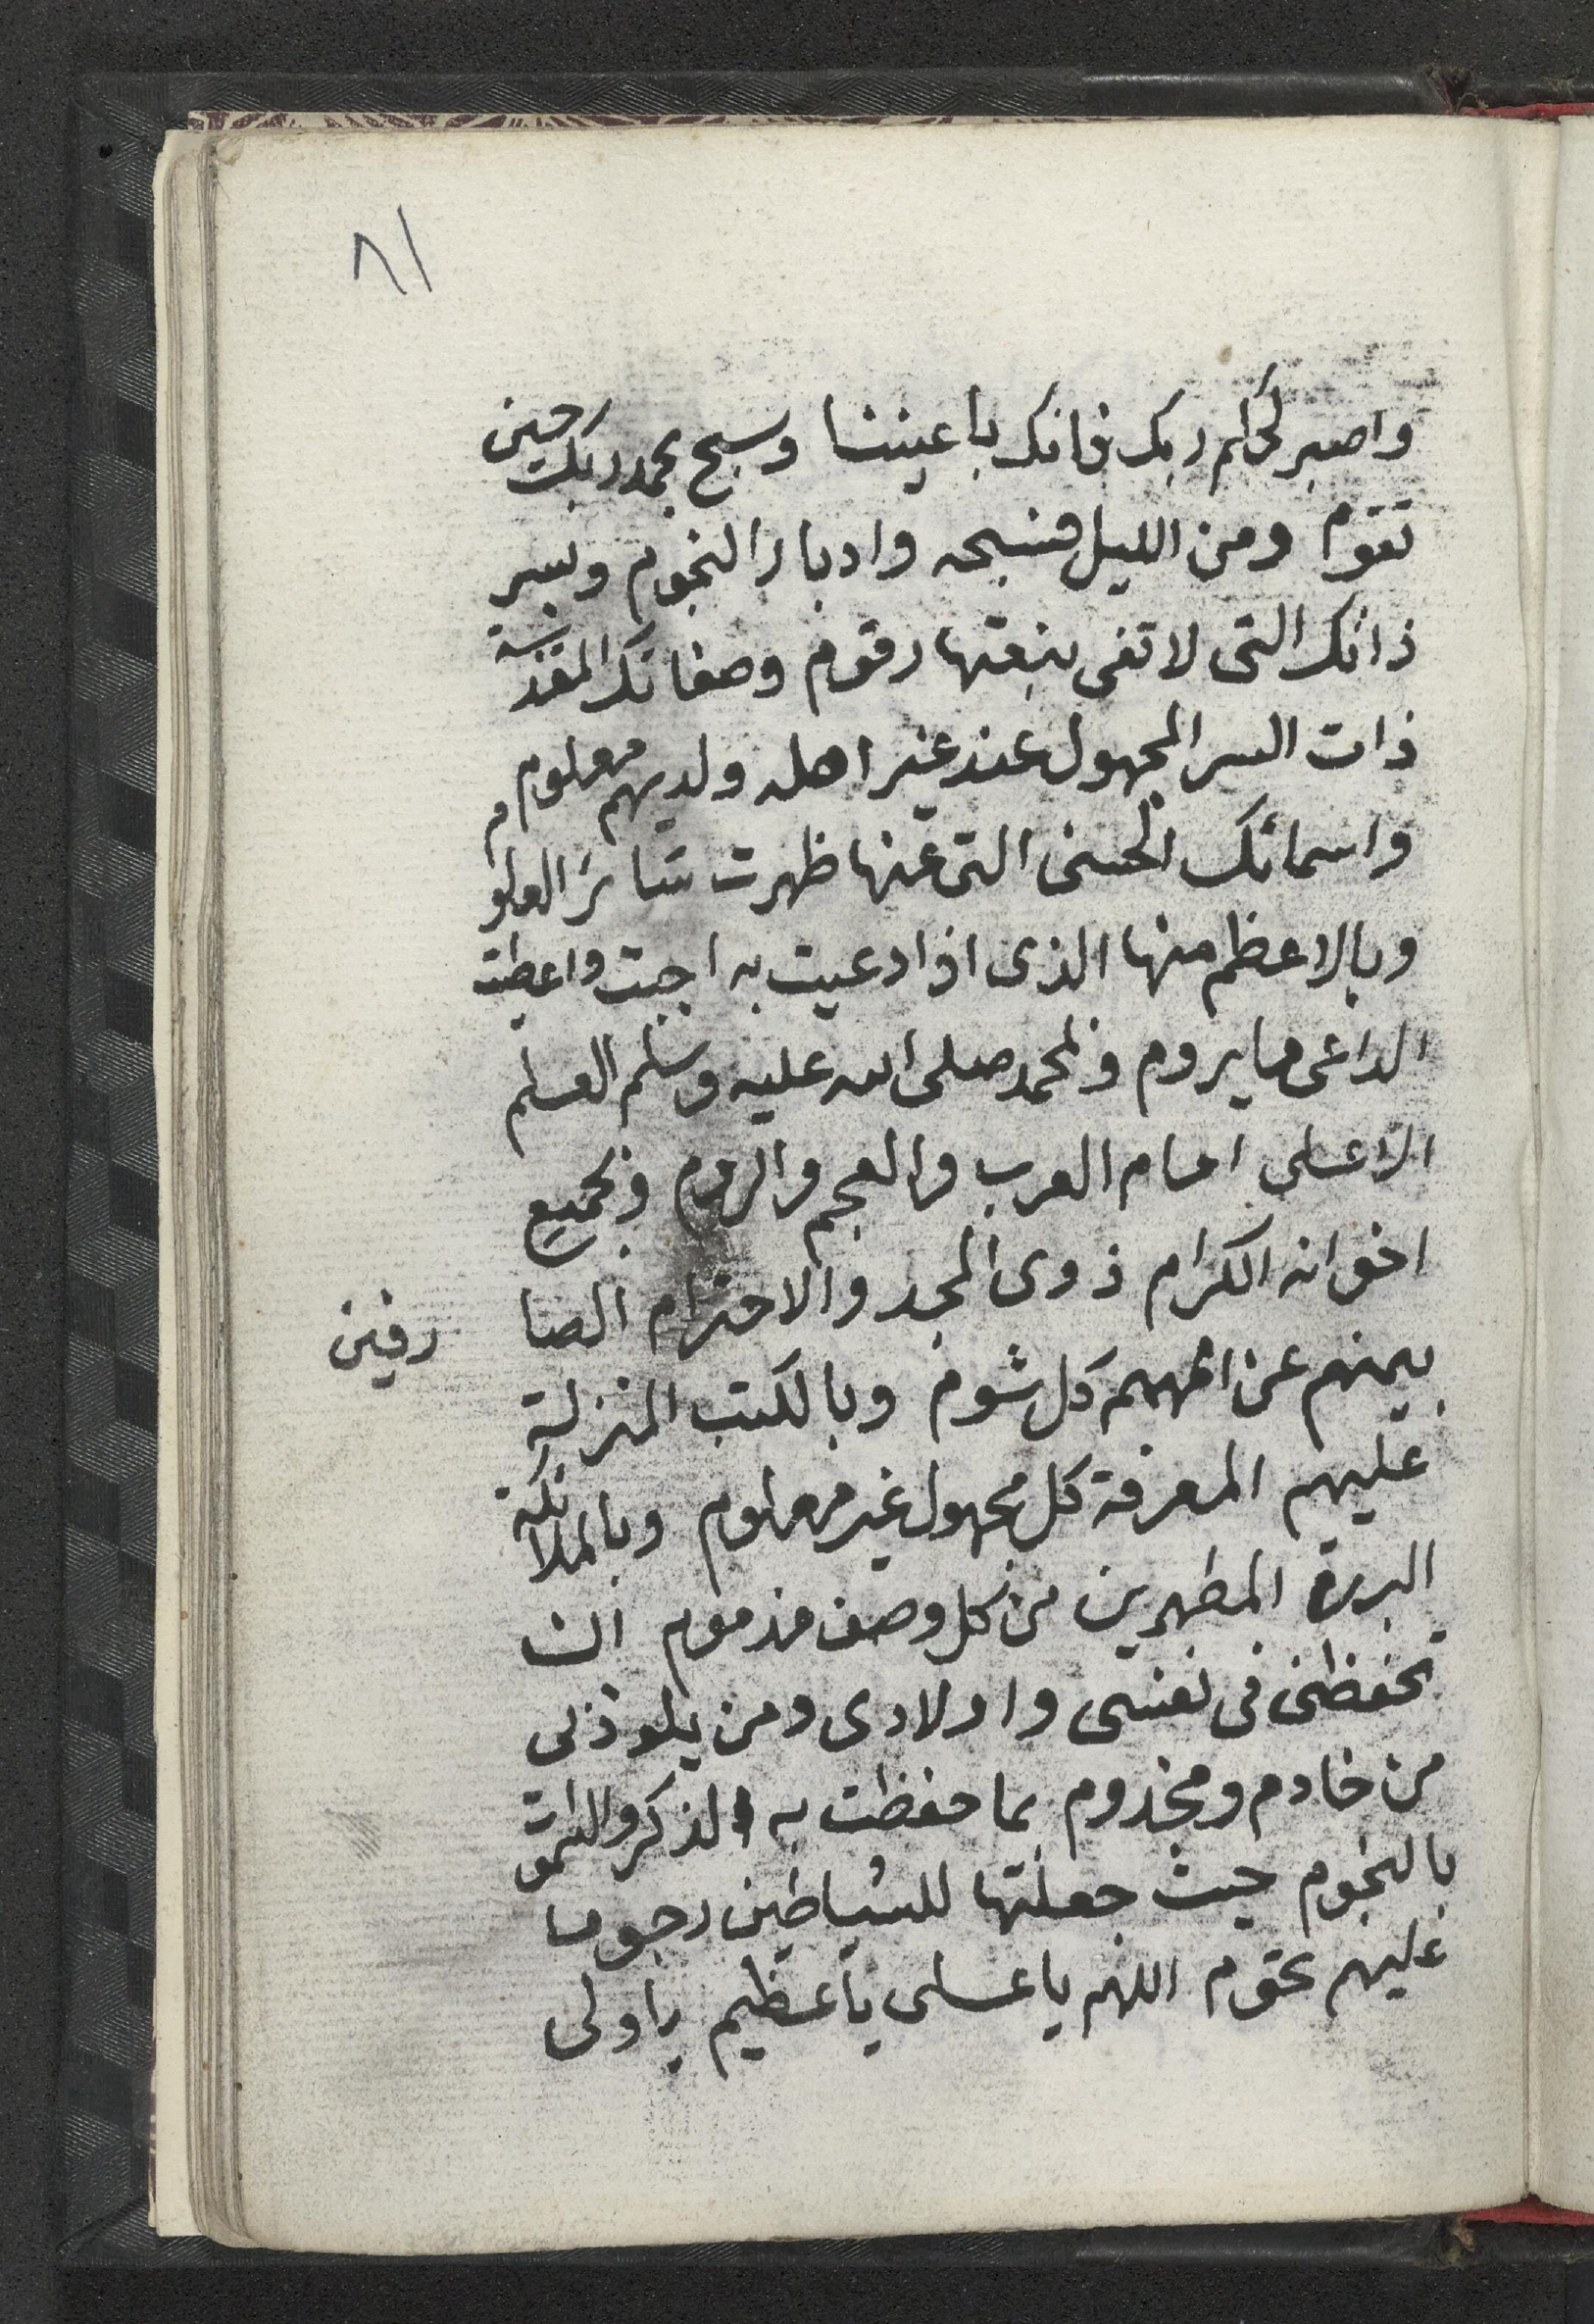 ٨١
واصبر لحكم ربك فانك باعيننا وسبح بحمد ربك حين
تقوم ومن الليل فسبحه وادبار النجوم وبسر
ذاتك التى لا تفى بنعتها رقوم وصفاتك المقدسة
ذات السر المجهول عند غير اهله ولديهم معلوم
واسمائك الحسنى التى عنها ظهرت نتائج العلوم
وبالاعظم منها الذى اذا دعيت به اجبت واعطيت
الداعى ما يروم وبمحمد صلى الله عليه وسلم العلم
الاعلى امام العرب والعجم والروم وبجميع
اخوانه الكرام ذوى المجد والاحترام الصا رفين
بيمنهم عن اممهم كل شوم وبالكتب المنزلة
عليهم المعرفة كل مجهول غير معلوم وبالملائكة
البررة المطهرين من كل وصف مذموم ان
تحفظنى فى نفسى واولادى ومن يلوذ بى
من خادم ومخدوم بما حفظت به الذكر والسموات
بالنجوم حيث جعلتها للشياطين رجوما
عليهم تحوم اللهم يا على يا عظيم يا ولى